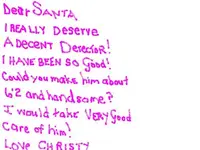 Dear Santa
I Really Deserve
A Decent Detector!
I HAVE BEEN SO Good!
Could you make him about
6'2 and handsome?
I would take Very Good
care of him!
Love Christy